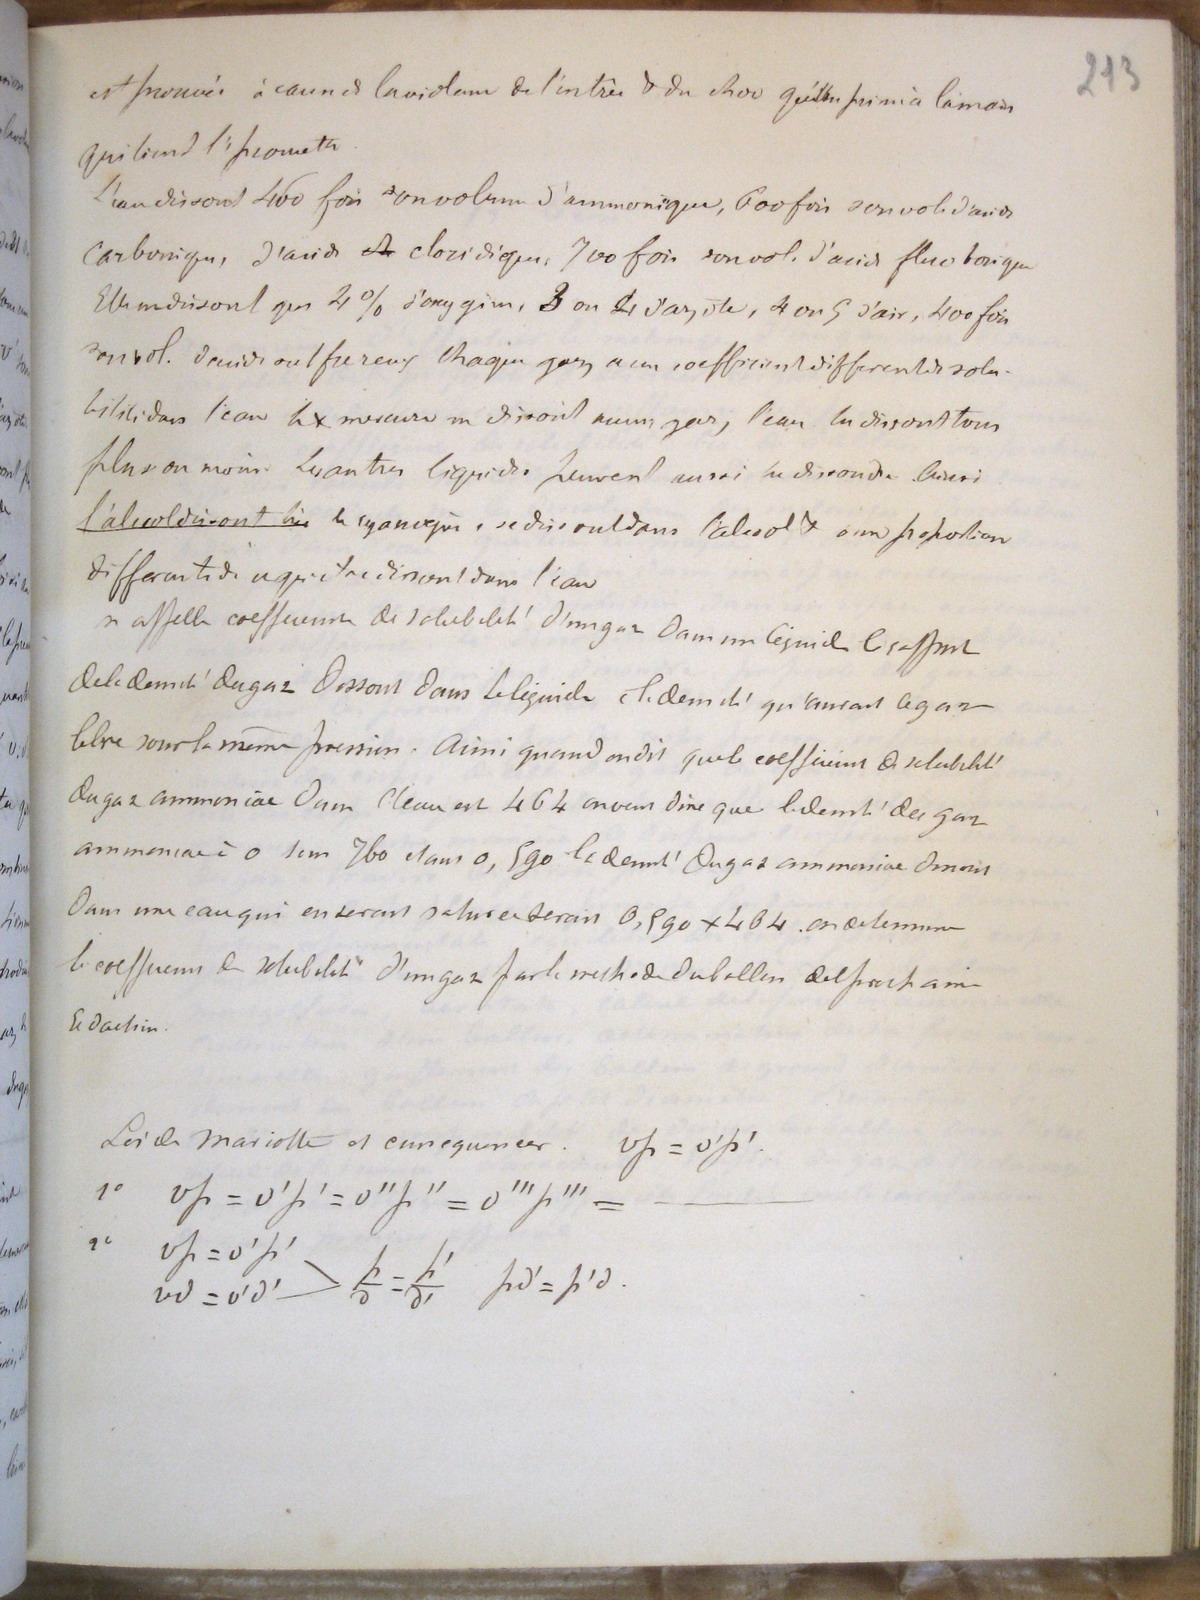 213
est prouvée à cause de la violence de l'entrée & du choc qu'elle imprime à la main
qui tient l'éprouvette.
L'eau dissout 460 fois son volume d'ammoniaque, 600 fois son vol. d'acide
carbonique, d'acide chloridique, 700 fois son vol. d'acide fluo borique
Elle ne dissout que 4 % d'oxygène, 3 ou 4 d'azote, 4 ou 5 d'air, 400 fois
son vol. d'acide sulfureux Chaque gaz a un coefficient différent de solu-
bilité dans l'eau Le mercure ne dissout aucun gaz, l'eau les dissout tous
plus ou moins Les autres liquides peuvent aussi les dissoudre Ainsi
l'alcool dissout le cyanogène se dissout dans l'alcool & a une proportion
differente de ce qui se dissout dans l'eau
on appelle coefficient de solubilité d'un gaz dans un liquide le rapport
de la densité du gaz dissout dans le liquide à la densité qu'aurait le gaz
libre sous la même pression. Ainsi quand on dit que le coefficient de solubilité
du gaz ammoniac dans l'eau est 464 on veut dire que la densité du gaz
ammoniac à 0 sous 760 étant 0,590 la densité du gaz ammoniac dissout
dans une eau qui en serait saturée serait 0,590 x 464. on determine
le coefficient de solubilité d'un gaz par la methode du ballon de la prochaine
Redaction.
Loi de Mariotte et consequences. vp = v'p'.
1° vp = v'p' = v''p'' = v'''p''' =
2° vp = v'p'
vd = v'd' > p/d = p'/d' pd' = p'd.